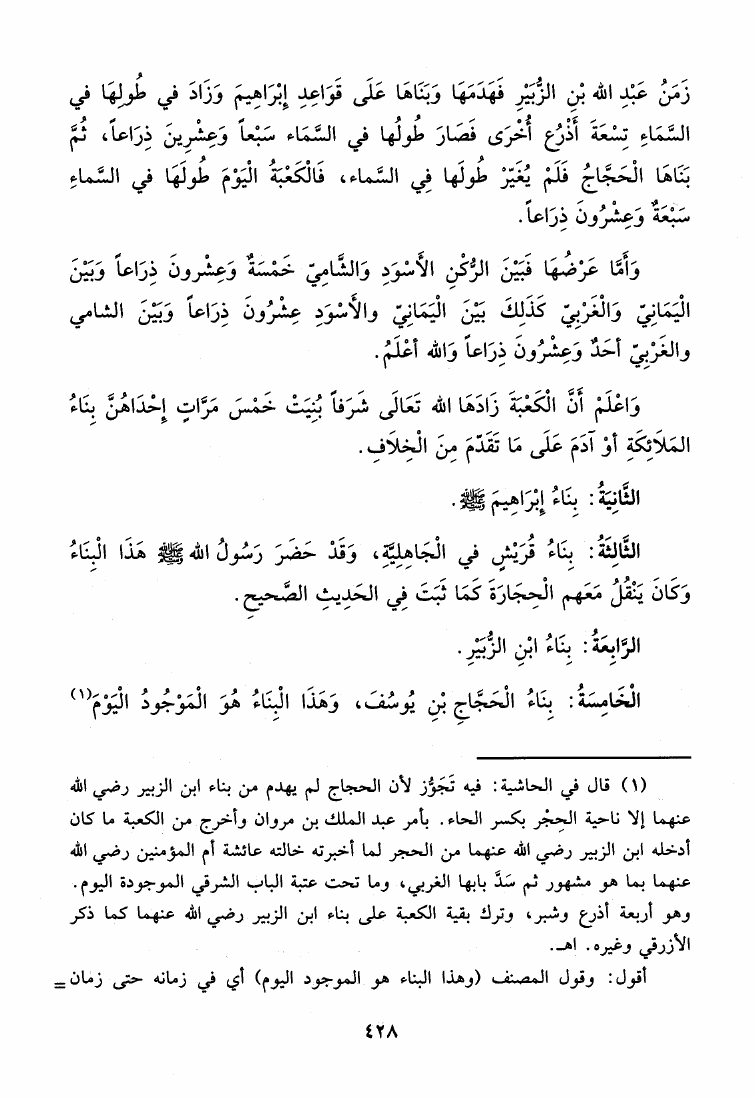 زَمَنُ عَبْدِ الله بْنِ الزُّبَيْرِ فَهَدَمَهَا وَبَنَاهَا عَلَى قَوَاعِدِ إِبْرَاهِيمَ وَزَادَ في طُولِهَا في
السَّمَاءِ تِسْعَةَ أَذْرُعٍ أُخْرَى فَصَارَ طُولُها في السَّمَاء سَبْعاً وَعِشْرِينَ ذِرَاعاً، ثُمَّ
بَنَاهَا الْحَجَّاجُ فَلَمْ يُغَيِّرْ طُولَها فِي السَّماء، فَالْكَعْبَةُ الْيَوْمَ طُولَهَا في السَّماءِ
سَبْعَةٌ وَعِشْرُونَ ذِرَاعاً.
وَأَمَّا عَرْضُهَا فَبَيْنَ الرُّكْنِ الأَسْوَدِ وَالشَّامِيّ خَمْسَةٌ وَعِشْرونَ ذِرَاعاً وَبَيْنَ
الْيَمَانِيّ وَالْغَرْبِيّ كَذَلِكَ بَيْنَ الْيَمَانِيّ والأَسْوَدِ عِشْرُونَ ذِرَاعاً وَبَيْنَ الشامي
والغَرْبِيّ أحَدٌ وَعِشْرُونَ ذِرَاعاً وَالله أعْلَمُ.
وَاعْلَمْ أَنَّ الْكَعْبَةَ زَادَهَا الله تَعَالَى شَرَفاً بُنِيَتْ خَمْسَ مَرَّاتٍ إِحْدَاهُنَّ بِنَاءُ
المَلَائِكَةِ أوْ آدَمَ عَلَى مَا تَقَدّمَ مِنَ الْخِلَافِ.
الثَّانِيَةُ: بِنَاءُ إِبْرَاهِيمَ ﷺ.
الثَّالِثَةُ: بِنَاءُ قُرَيْشٍ في الْجَاهِلِيَّةِ، وَقَدْ حَضَرَ رَسُولُ الله ﷺ هَذَا الْبِنَاءُ
وَكَانَ يَنْقُلُ مَعَهم الْحِجَارَةَ كَمَا ثَبَتَ فِي الحَدِيثِ الصَّحيحِ.
الرَّابِعَةُ: بِنَاءُ ابْنِ الزُّبَيْرِ.
الْخَامِسَةُ: بِنَاءُ الْحَجَّاجِ بْنِ يُوسُفَ، وَهَذَا الْبِنَاءُ هُوَ الْمَوْجُودُ الْيَوْمَ(١)
(١) قال في الحاشية: فيه تَجَوُّز لأن الحجاج لم يهدم من بناء ابن الزبير رضي الله
عنهما إلا ناحية الحِجْر بكسر الحاء. بأمر عبد الملك بن مروان وأخرج من الكعبة ما كان
أدخله ابن الزبير رضي الله عنهما من الحجر لما أخبرته خالته عائشة أم المؤمنين رضي الله
عنهما بما هو مشهور ثم سَدَّ بابها الغربي، وما تحت عتبة الباب الشرقي الموجودة اليوم.
وهو أربعة أذرع وشبر، وترك بقية الكعبة على بناء ابن الزبير رضي الله عنهما كما ذكر
الأزرقي وغيره. اهـ.
أقول: وقول المصنف (وهذا البناء هو الموجود اليوم) أي في زمانه حتى زمان =
٤٢٨